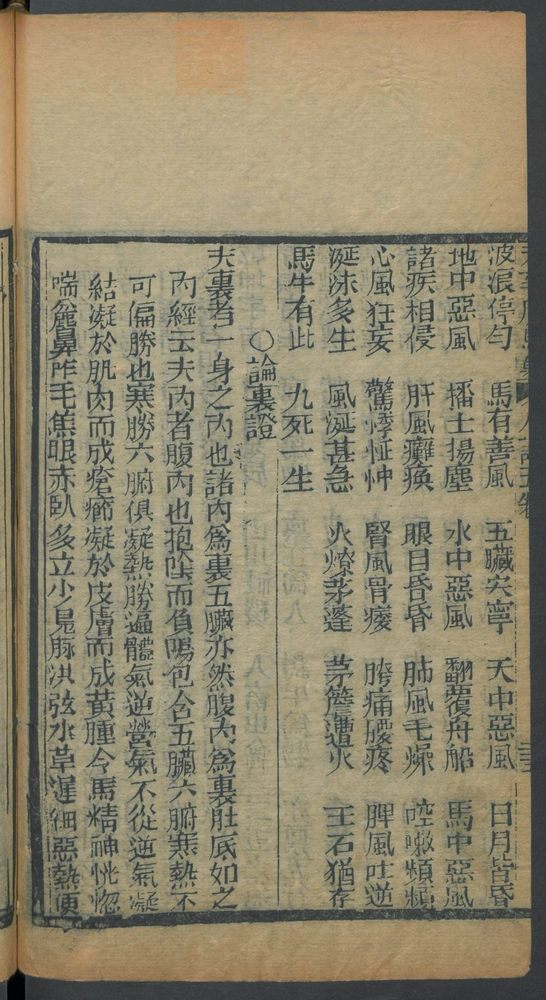 波浪停匀　馬有善風　五臟安寧　天中惡風　日月皆昏
地中惡風　播土揚塵　水中惡風　翻覆舟船　馬中惡風
諸疾相侵　肝風癱瘓　眼目昏昏　肺風毛燥　咳嗽頻頻
心風狂妄　驚悸怔忡　腎風骨痿　胯痛腰疼　脾風吐逆
涎沫多生　風涎甚急　火燎茅蓬　茅簷遭火　玉石猶存
馬牛有此　九死一生
○論裏證
夫裏者一身之內也諸內爲裏五臟亦然腹內爲裏肚底如之
內經云夫內者腹內也抱陰而負陽包含五臟六腑寒熱不
可偏勝也寒勝六腑俱凝熱勝遍體氣逆營氣不從逆氣凝
結凝於肌肉而成瘡癤凝於皮膚而成黃腫令馬精神恍惚
喘麄鼻咋毛焦眼赤臥多立少見脉洪弦水草遲細惡熱便